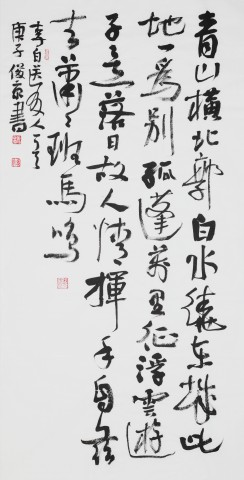 青山橫北郭白水繞東城此
地一為別孤蓬萬里征浮雲遊
子意落日故人情揮手自茲
去蕭〻班馬鳴
李白送友人
庚子俊書